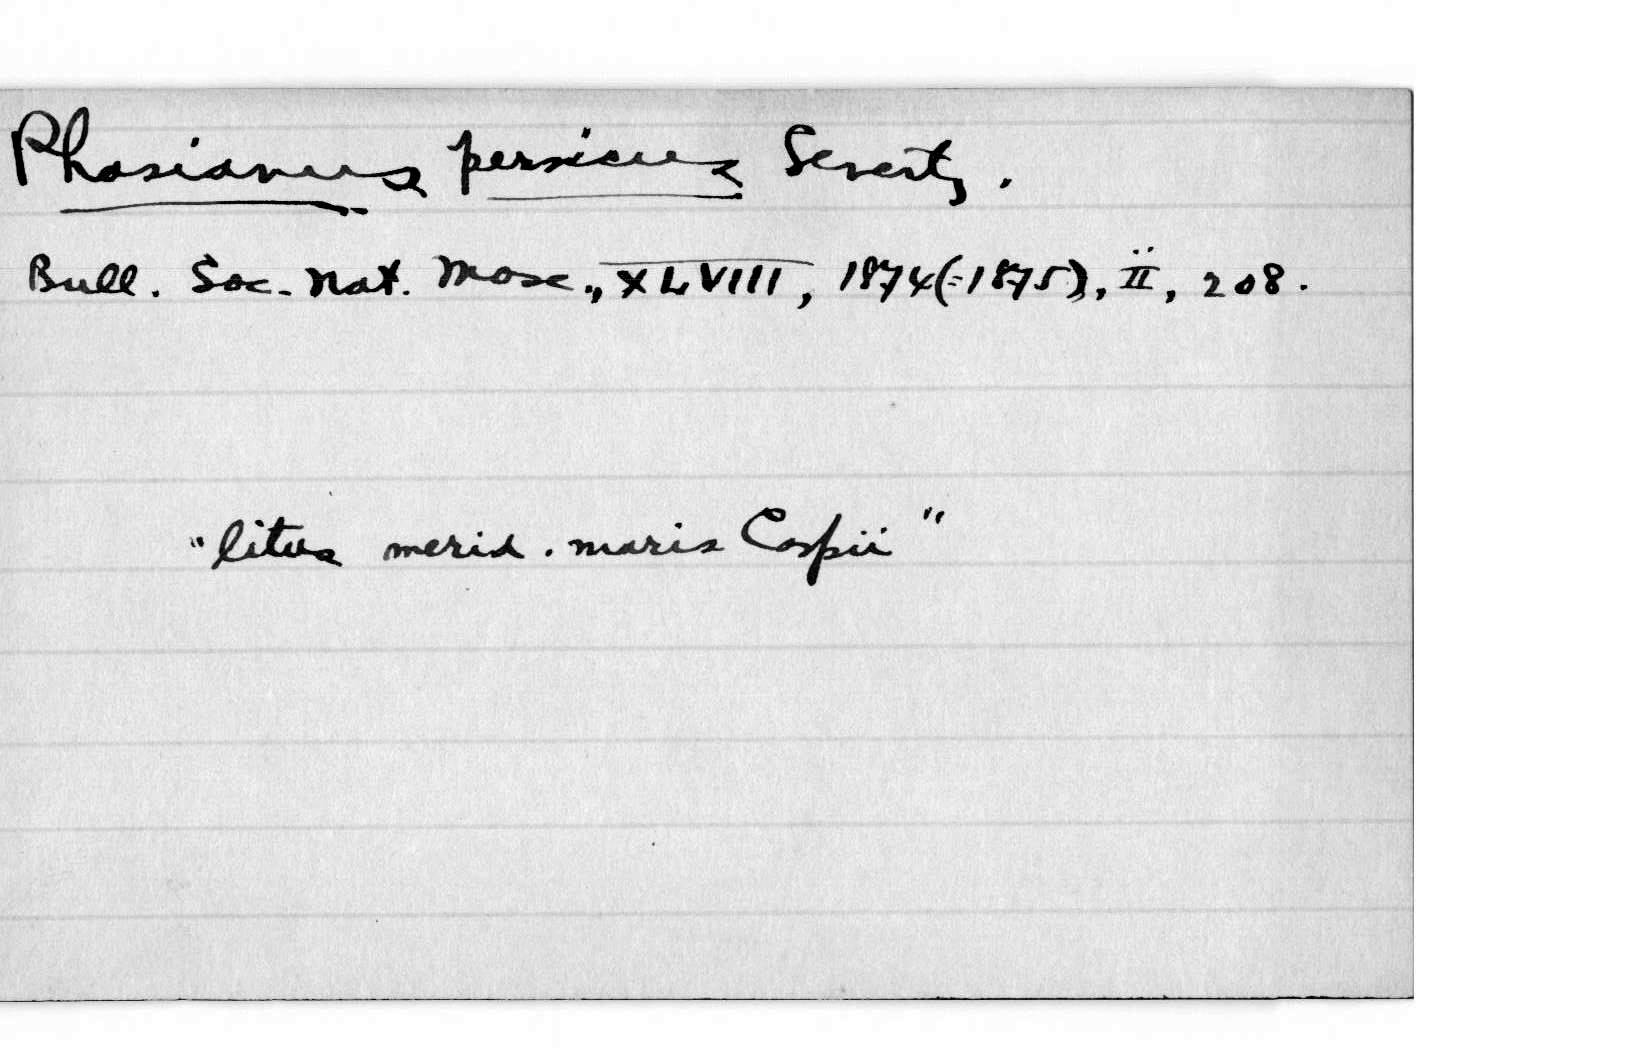 Phasianus persicus Severtz.
Bull. Soc. Nat. Mosc., XLVIII, 1874(=1875), ii, 208.
"litus merid. maris Caspii"